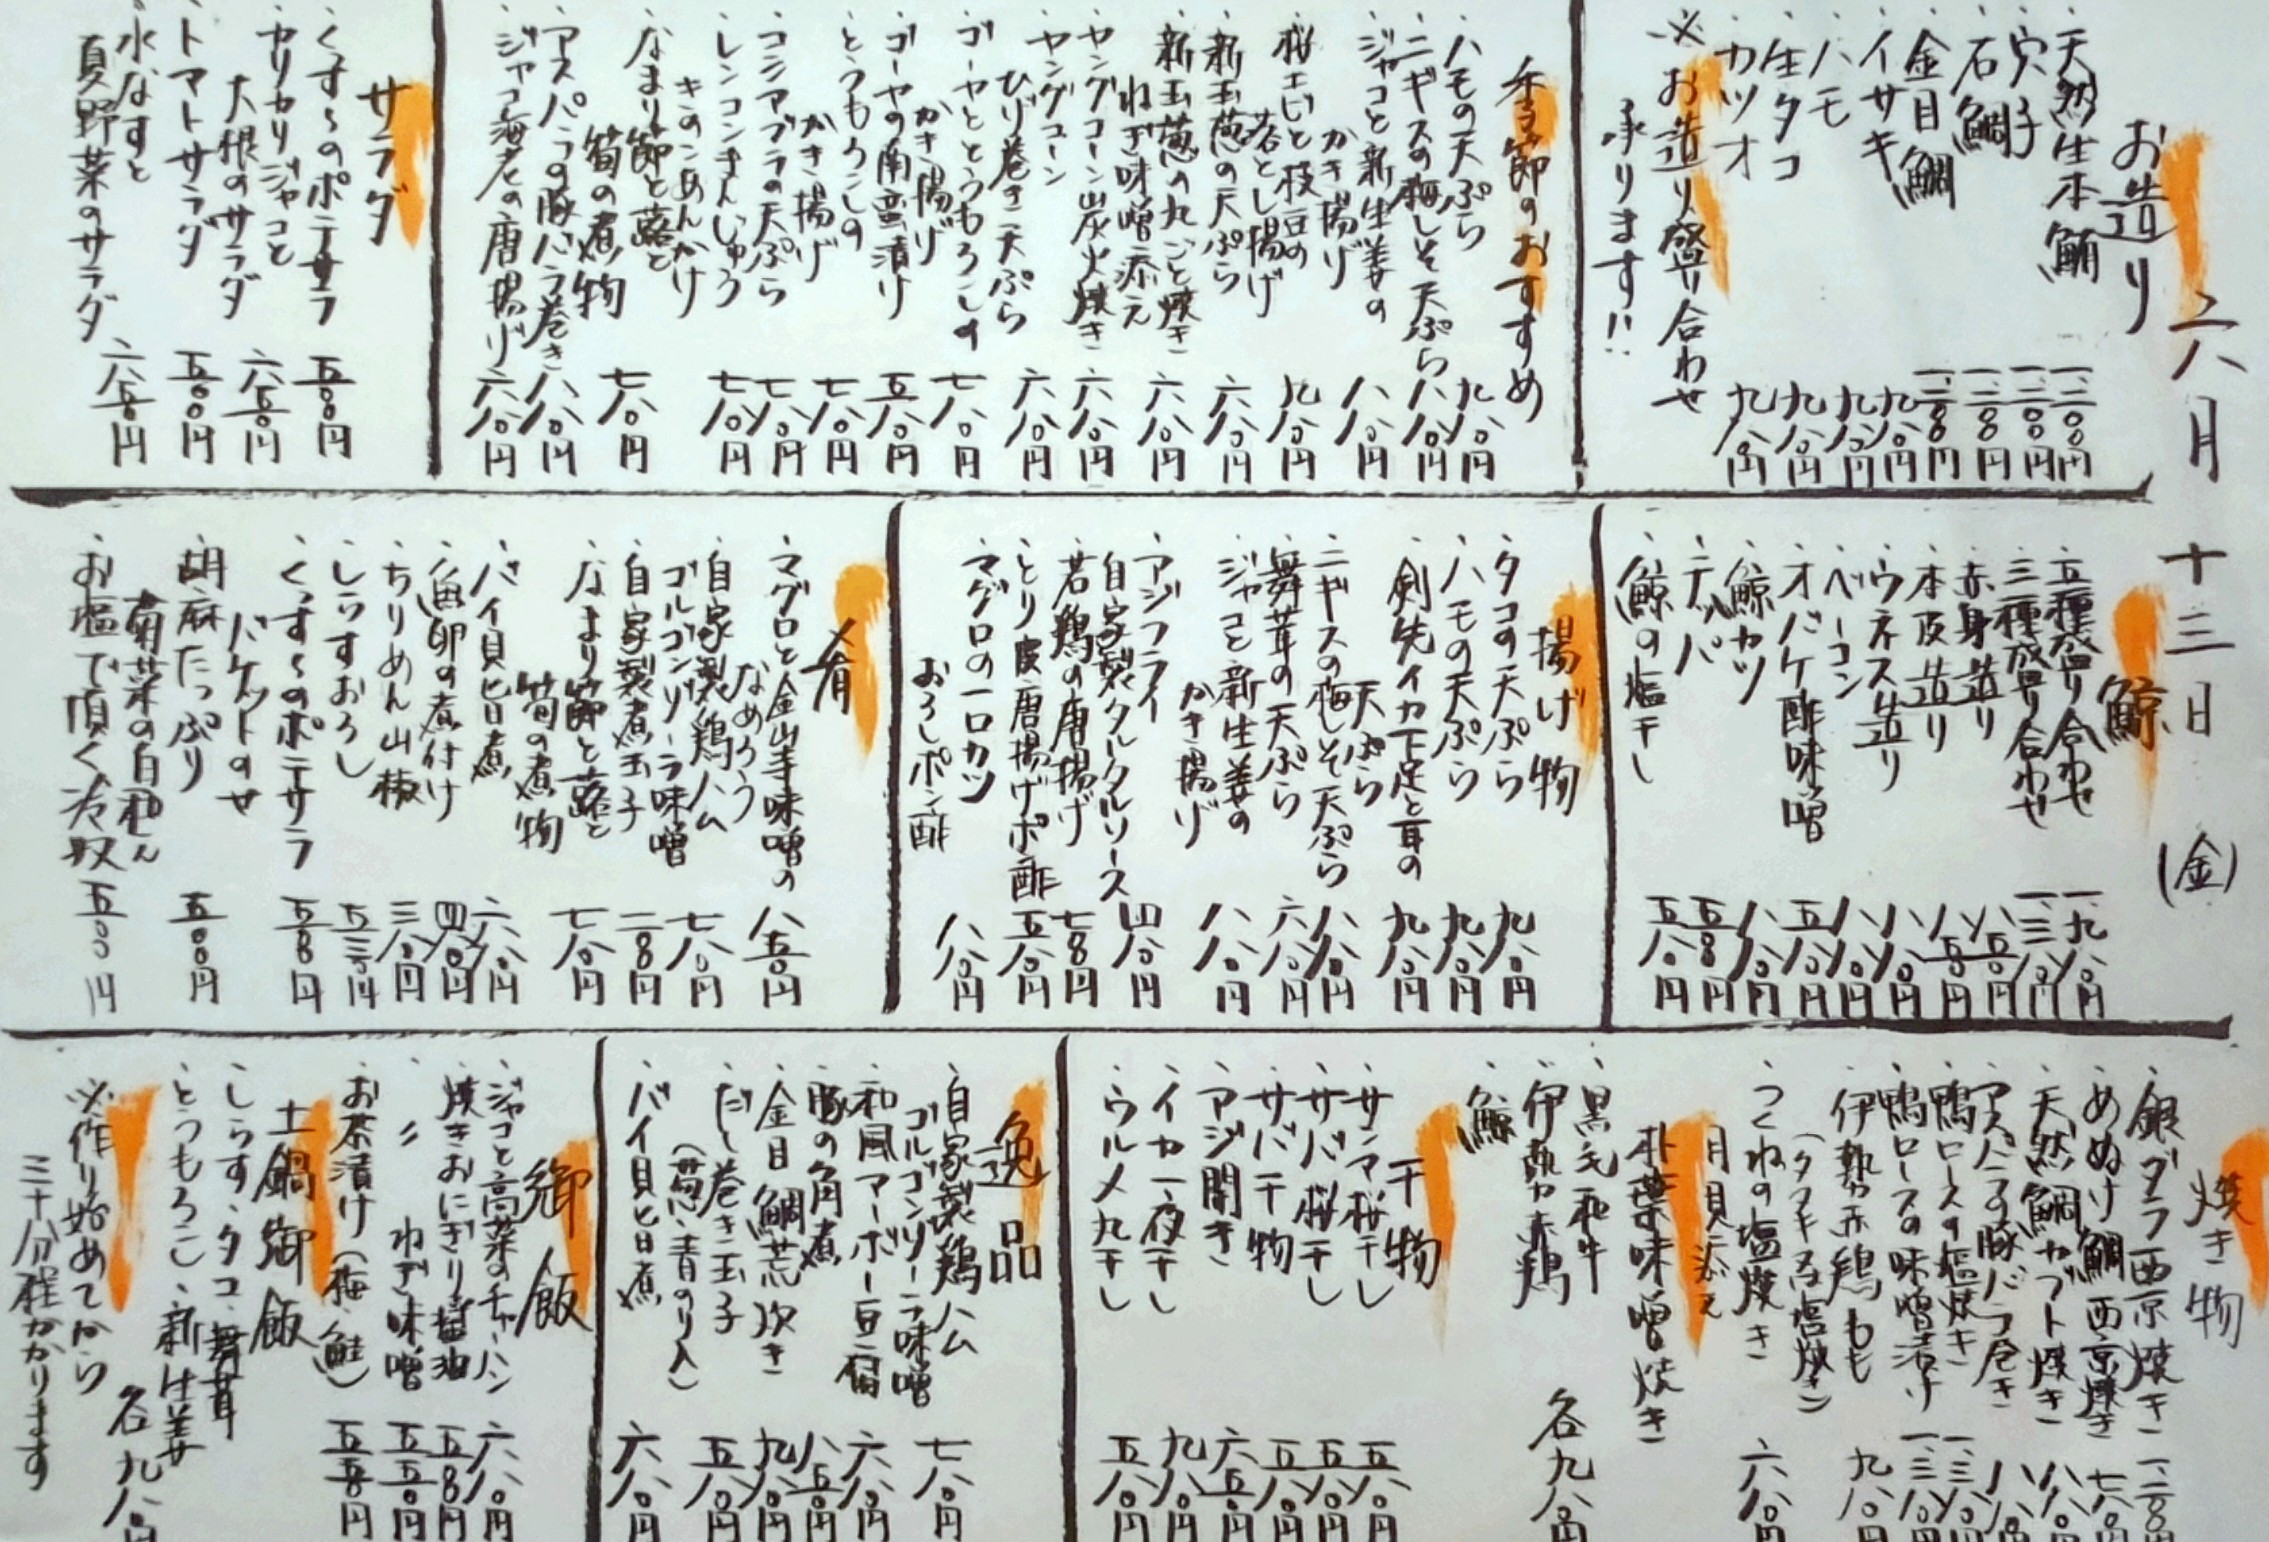 六月十三日(金)
お造り
・天然生本鮪 一、三〇〇円
・穴子 一、二〇〇円
・石鯛 一、二〇〇円
・金目鯛 一、二〇〇円
・イサキ 九八〇円
・ハモ 九八〇円
・生タコ 九八〇円
・カツオ 九八〇円
※お造り盛り合わせ
承ります!!
季節のおすすめ
・ハモの天ぷら 九八〇円
・ニギスの梅しそ天ぷら 八八〇円
・ジャコと新生姜の
かき揚げ 八八〇円
・桜エビと枝豆の
落とし揚げ 九八〇円
・新玉葱の天ぷら 六八〇円
・新玉葱の丸ごと焼き
ねぎ味噌添え 六八〇円
・ヤングコーン炭火焼き 六八〇円
・ヤングコーン
ひげ巻き天ぷら 六八〇円
・ゴーヤととうもろこしの
かき揚げ 七八〇円
・ゴーヤの南蛮漬け 五八〇円
・とうもろこしの
かき揚げ 七八〇円
・コシアブラの天ぷら 七八〇円
・レンコンまんじゅう
きのこあんかけ 七八〇円
・なまり節と蕗と
筍の煮物 七八〇円
・アスパラの豚バラ巻き 八八〇円
・ジャコ海老の唐揚げ 六八〇円
サラダ
・くすくすのポテサラ 五八〇円
・カリカリジャコと
大根のサラダ 六五〇円
・トマトサラダ 五〇〇円
・水なすと
夏野菜のサラダ 六五〇円
鯨
・五種盛り合わせ 一、九八〇円
・三種盛り合わせ 一、三八〇円
・赤身造り 八五〇円
・本皮造り 八五〇円
・ウネス造り 八八〇円
・ベーコン 八八〇円
・オバケ酢味噌 五八〇円
・鯨カツ 八八〇円
・テッパ 五五〇円
・鯨の塩干し 五八〇円
揚げ物
・タコの天ぷら 九八〇円
・ハモの天ぷら 九八〇円
・剣先イカ下足と耳の
天ぷら 九八〇円
・ニギスの梅しそ天ぷら 八八〇円
・舞茸の天ぷら 六八〇円
・ジャコと新生姜の
かき揚げ 八八〇円
・アジフライ
自家製タルタルソース 四八〇円
・若鶏の唐揚げ 七八〇円
・とり皮唐揚げポン酢 五八〇円
・マグロの一口カツ
おろしポン酢 八八〇円
肴
・マグロと金山寺味噌の
なめろう 八五〇円
・自家製鶏ハム
ゴルゴンゾーラ味噌 七八〇円
・自家製煮玉子 二八〇円
・なまり節と蕗と
筍の煮物 七八〇円
・バイ貝旨煮 六八〇円
・魚卵の煮付け 四八〇円
・ちりめん山椒 三八〇円
・しらすおろし 五三〇円
・くすくすのポテサラ
バケットのせ 五八〇円
・胡麻たっぷり
菊菜の白和え 五〇〇円
・お塩で頂く冷奴 五〇〇円
焼き物
・銀ダラ西京焼き 一、二八〇円
・めぬけ鯛西京焼き 七八〇円
・天然鯛カブト焼き 八八〇円
・アスパラの豚バラ巻き 八八〇円
・鴨ロースの塩焼き 一、三八〇円
・鴨ロースの味噌漬け 一、三八〇円
・伊勢赤鶏もも
(タタキor塩焼き) 九八〇円
・つくねの塩焼き
月見添え 六八〇円
朴葉味噌焼き
・黒毛和牛
・伊勢赤鶏
・鯨
各九八〇円
干物
・サンマ桜干し 五八〇円
・サバ桜干し 五八〇円
・サバ干物 五八〇円
・アジ開き 六五〇円
・イカ一夜干し 九八〇円
・ウルメ丸干し 五八〇円
逸品
・自家製鶏ハム
ゴルゴンゾーラ味噌 七八〇円
・和風マーボー豆腐 六八〇円
・豚の角煮 八五〇円
・金目鯛荒炊き 九八〇円
・だし巻き玉子
(葱・青のり入) 五八〇円
・バイ貝旨煮 六八〇円
御飯
・ジャコと高菜のチャーハン 六八〇円
・焼きおにぎり醤油 五八〇円
・〃 ねぎ味噌 五五〇円
・お茶漬け(梅・鮭) 五五〇円
土鍋御飯
・しらす・タコ・舞茸
・とうもろこし・新生姜
各九八〇円
※作り始めてから
三十分程かかります